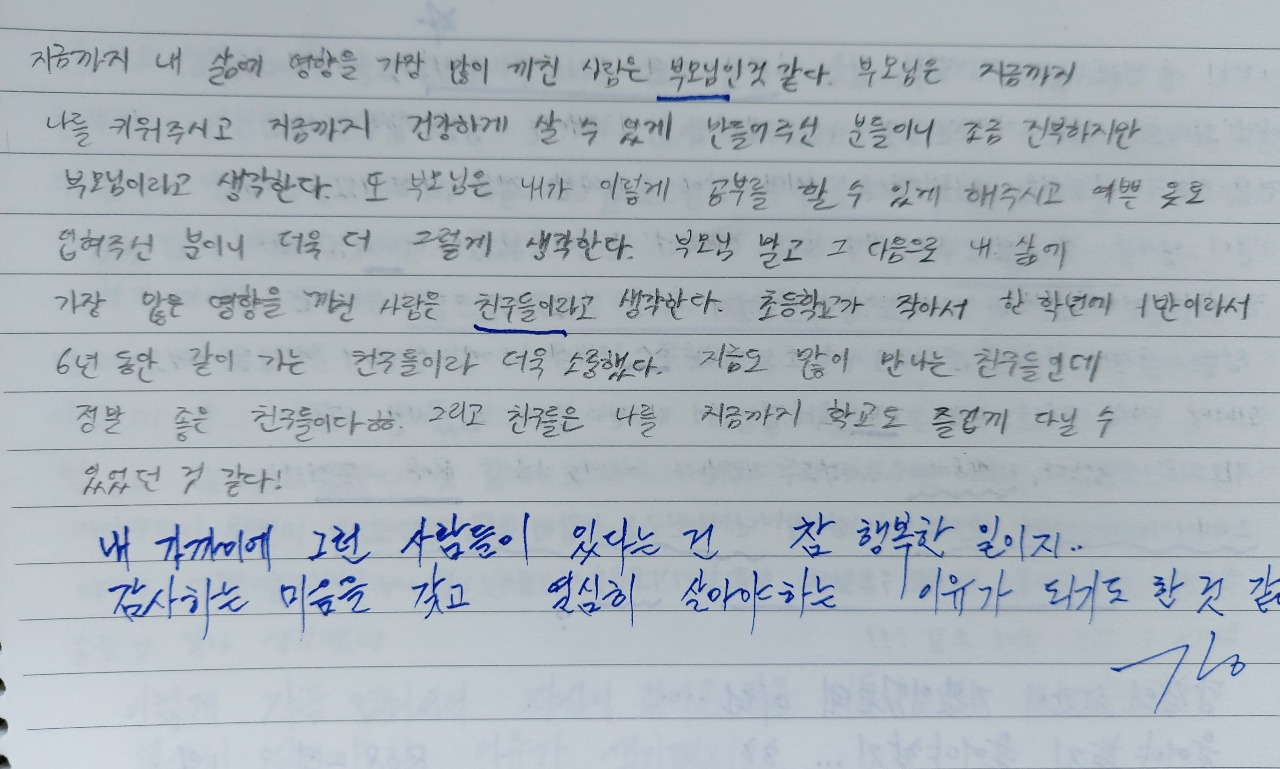 지금까지 내 삶에 영향을 가장 많이 끼친 사람은 부모님인것 같다. 부모님은 지금까지
나를 키워주시고 지금까지 건강하게 살 수 있게 만들어주신 분들이니 조금 진부하지만
부모님이라고 생각한다. 또 부모님은 내가 이렇게 공부를 할 수 있게 해주시고 예쁜 옷도
입혀주신 분이니 더욱 더 그렇게 생각한다. 부모님 말고 그 다음으로 내 삶에
가장 많은 영향을 끼친 사람은 친구들이라고 생각한다. 초등학교가 작아서 한 학년에 1반이라서
6년 동안 같이 가는 친구들이라 더욱 소중했다. 지금도 많이 만나는 친구들인데
정말 좋은 친구들이다ㅎㅎ. 그리고 친구들은 나를 지금까지 학교도 즐겁게 다닐 수
있었던 것 같다!
내 가까이에 그런 사람들이 있다는 건 참 행복한 일이지..
감사하는 마음을 갖고 열심히 살아야하는 이유가 되기도 한 것